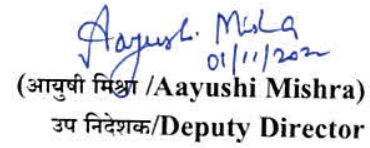 Aayush. Mishra
01/11/2022
(आयुषी मिश्रा /Aayushi Mishra)
उप निदेशक/Deputy Director